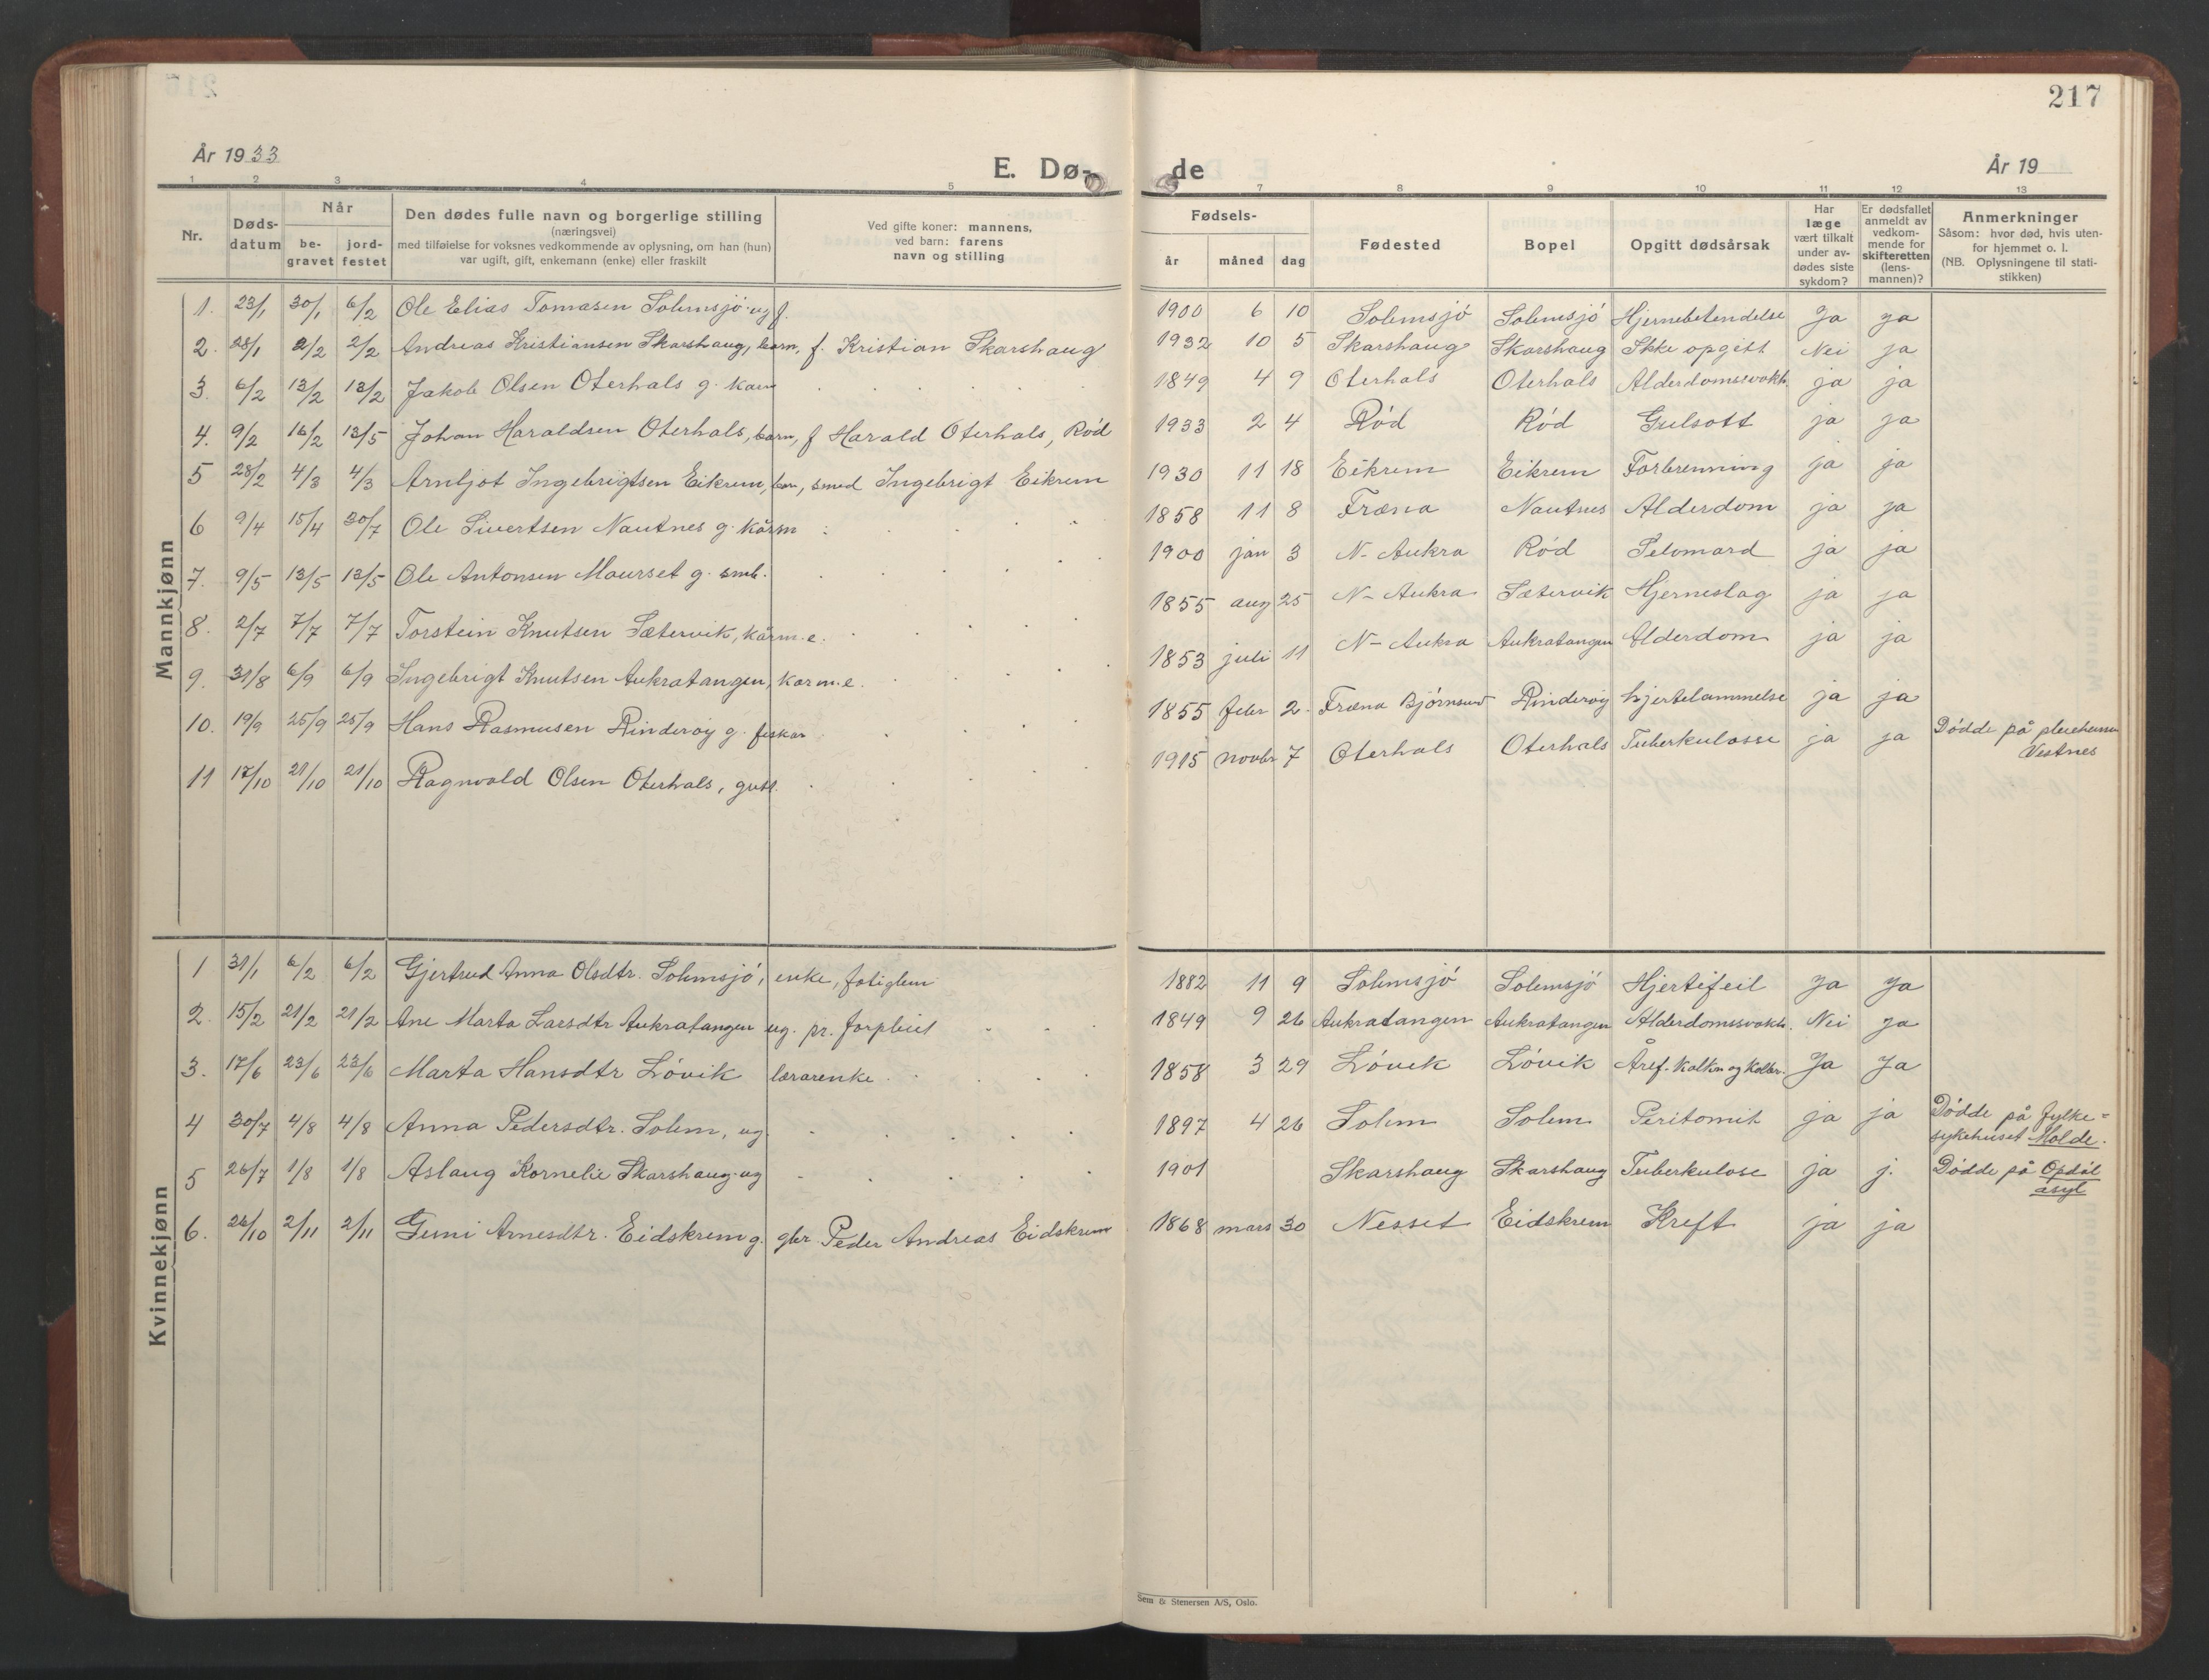 217
År 1933
E. Dø-
de
År 19
1 2 3 4 5
7 8 9 10 11 12 13
Nr.
Døds-
datum
Når
be-
gravet
jord-
festet
Den dødes fulle navn og borgerlige stilling
(næringsvei)
med tilføielse for voksnes vedkommende av oplysning, om han (hun)
var ugift, gift, enkemann (enke) eller fraskilt
Ved gifte koner: mannens,
ved barn: farens
navn og stilling
Fødsels-
år måned dag
Fødested
Bopel
Opgitt dødsårsak
Har
læge
vært tilkalt
under av-
dødes siste
sykdom?
Er dødsfallet
anmeldt av
vedkom-
mende for
skifteretten
(lens-
mannen)?
Anmerkninger
Såsom: hvor død, hvis uten-
for hjemmet o. l.
(NB. Oplysningene til stati-
stikken)
Mannkjønn
1. 23/1 30/1 6/2 Ole Elias Tomasen Solemsjö ug f. 1900 6 10 Solemsjö Solemsjö Hjernebetendelse Ja ja
2. 28/1 2/2 2/2 Andreas Kristiansen Skarshaug, barn, f. Kristian Skarshaug 1932 10 5 Skarshaug Skarshaug Ikke opgitt Nei ja
3. 6/2 13/2 13/2 Jakob Olsen Oterhals g. kårm 1849 4 9 Oterhals Oterhals Alderdomssvakh. ja ja
4. 9/2 16/2 13/5 Johan Haraldsen Oterhals, barn, f Harald Oterhals, Röd 1933 2 4 Röd Röd Gulsott ja ja
5 28/2 4/3 4/3 Arnljot Ingebrigtsen Eikrem, barn, smed Ingebrigt Eikrem 1930 11 18 Eikrem Eikrem Forbrenning ja ja
6 9/4 15/4 30/7 Ole Sivertsen Nautnes g. kårm 1858 11 8 Fræna Nautnes Alderdom ja ja
7. 9/5 13/5 13/5 Ole Antonsen Maurset g. smb. 1900 jan 3 N- Aukra Röd Selvmord ja ja
8. 2/7 7/7 7/7 Torstein Knutsen Sætervik, kårm. e. 1855 aug 25 N- Aukra Sætervik Hjerneslag ja ja
9. 31/8 6/9 6/9 Ingebrigt Knutsen Aukratangen, karm. e. 1853 juli 11 N- Aukra Aukratangen Alderdom ja ja
10. 19/9 25/9 25/9 Hans Rasmusen Rinderöy g. fiskar 1855 febr 2. Fræna Bjørnsund Rinderöy hjertelammelse ja ja
11 17/10 21/10 21/10 Ragnvald Olsen Oterhals, gutt. 1915 novbr 7 Oterhals Oterhals Tuberkulose ja ja Dödde på pleiehjem
Vestnes
Kvinnekjønn
1 31/1 6/2 6/2 Gjertrud Anna Olsdtr. Solemsjö, enke, fatiglem 1882 11 9 Solemsjö Solemsjö Hjertefeil Ja Ja
2. 15/2 21/2 21/2 Ane Marta Larsdtr Aukratangen ug. pr. forpleiet 1849 9 26 Aukratangen Aukratangen Alderdomssvakh. Nei ja
3. 17/6 23/6 23/6 Marta Hansdtr Lövik lærarenke 1858 3 29 Lövik Lövik Åref. kalkn og kolbr. Ja Ja
4 30/7 4/8 4/8 Anna Pedersdtr. Solem, ug 1897 4 26 Solem Solem Peritonit ja ja Dödde på fylke=
sykehuset Molde.
5 26/7 1/8 1/8 Aslaug Kornelie Skarshaug ug 1901 Skarshaug Skarshaug Tuberkulose ja j. Dödde på Opdöl
asyl
6. 26/10 2/11 2/11 Guni Arnesdtr. Eidskrem g. gbr. Peder Andreas Eidskrem 1868 mars 30 Nesset Eidskrem Kreft ja ja
Sem & Stenersen A/S, Oslo.